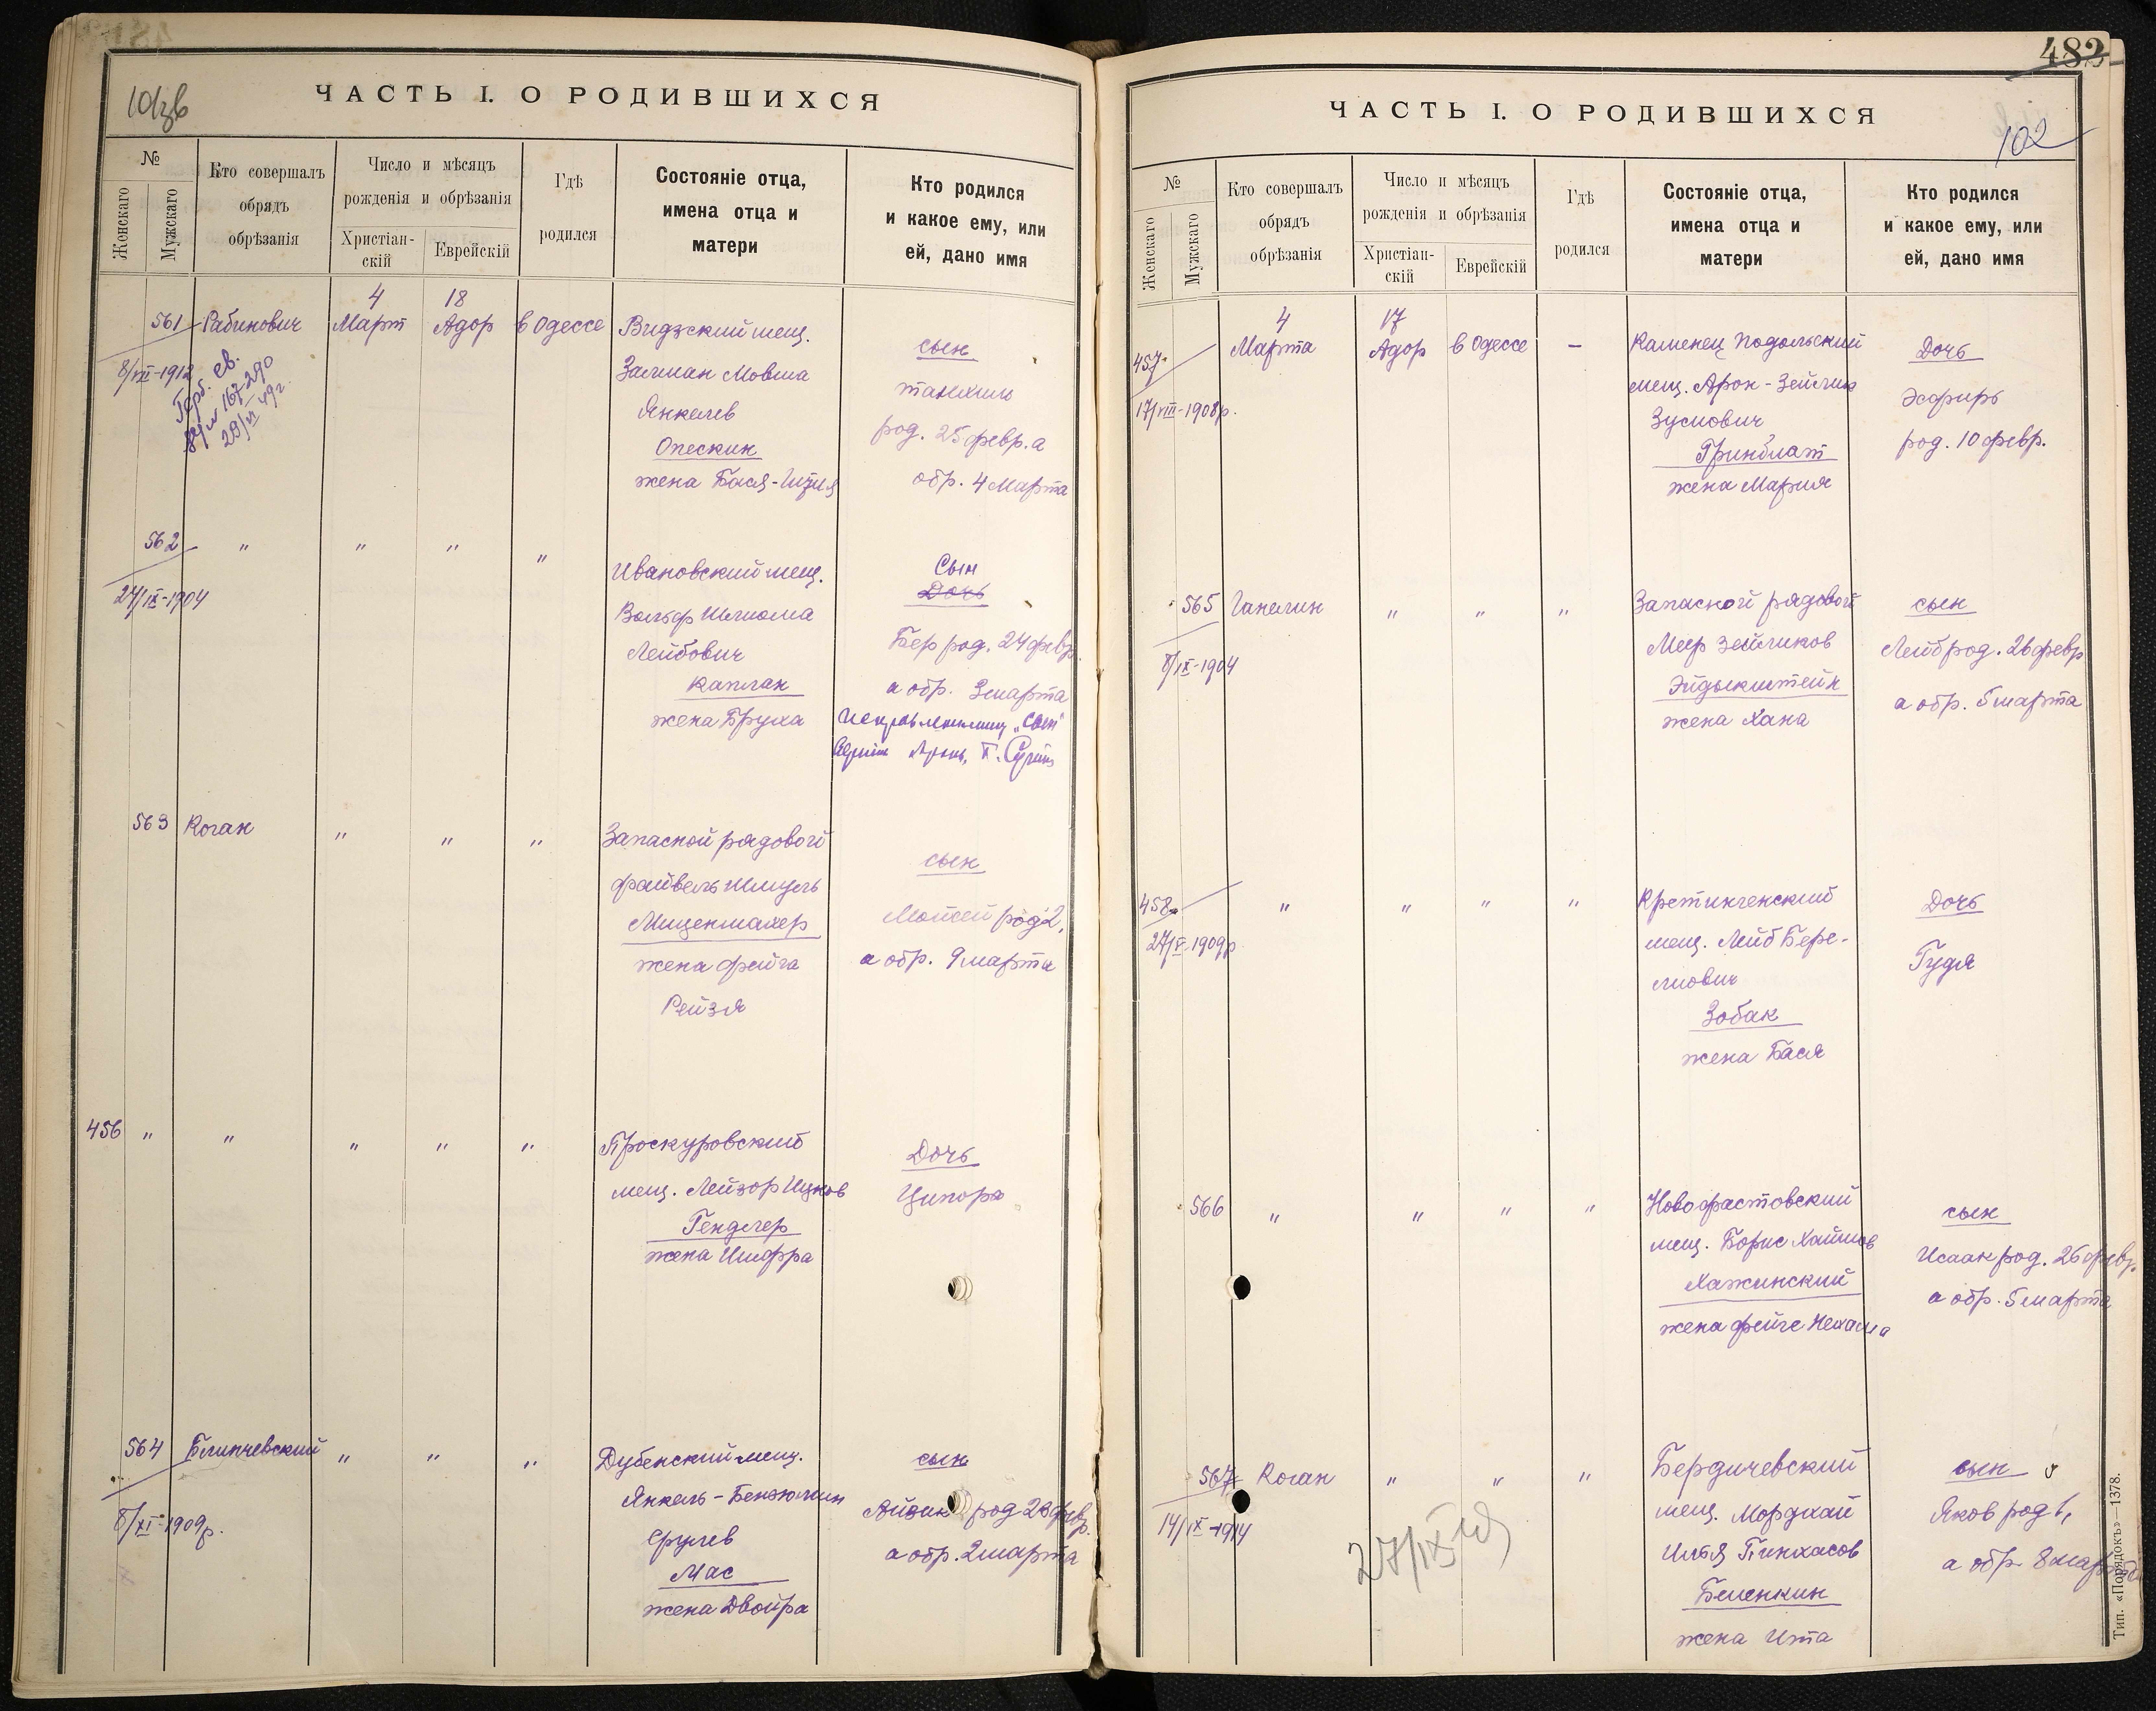 101зв
ЧАСТЬ I. О РОДИВШИХСЯ
№
Женскаго
Мужскаго
Кто совершалъ
обрядъ
обрѣзанія
Число и мѣсяцъ
рожденія и обрѣзанія
Христіан-
скій
Еврейскій
Гдѣ
родился
Состояніе отца,
имена отца и
матери
Кто родился
и какое ему, или
ей, дано имя
561
8/VII-1912
Рабинович
Герб. св.
167290
4
Март
18
Адор
в Одессе
Видзский мещ.
Залман Мовша
Янкелев
Опескин
жена Бася-
сын
Танхил
род. 25 февр. а
обр. 4 Марта
562
24/IX-1904
"
"
"
"
Ивановский мещ.
Вольф Шлиома
Лейбович
Каплан
жена Бруха
Сын
Дочь
Бер род. 24 февр.
а обр. 3 марта
"сын"
563
Коган
"
"
"
Запасной рядовой
Файвель Шмуль
Миценмахер
жена Фейга
Рейзя
сын
Мойсей род 2,
а обр. 9 марта
456
"
"
"
"
"
Проскуровский
мещ. Лейзор Ицков
Гендлер
жена Шифра
Дочь
Ципора
564
8/XI-1909р.
Блинчевский
"
"
"
Дубенский мещ.
Янкель-Бенюмин
Срулев
Мас
жена Двойра
сын
Айзик род 26 февр.
а обр. 2 марта
482
ЧАСТЬ I. О РОДИВШИХСЯ
102
№
Женскаго
Мужскаго
Кто совершалъ
обрядъ
обрѣзанія
Число и мѣсяцъ
рожденія и обрѣзанія
Христіан-
скій
Еврейскій
Гдѣ
родился
Состояніе отца,
имена отца и
матери
Кто родился
и какое ему, или
ей, дано имя
457
17/VIII-1908р.
4
Марта
17
Адор
в Одессе
-
Каменец Подольский
мещ. Арон-Зейлик
Зусиович
Гринблат
жена Мария
Дочь
Эсфирь
род. 10 февр.
565
8/IX-1904
Ганелин
"
"
"
Запасной рядовой
Меер Зейликов
Эйдыкштейн
жена Хана
сын
Лейб род. 26 февр
а обр. 5 марта
458
27/V-1909р
"
"
"
"
Кретингенский
мещ. Лейб Бере-
лиович
Зобак
жена Бася
Дочь
Гудя
566
"
"
"
"
Новофастовский
мещ. Борис Хаимов
Хажинский
жена Фейге Нехама
сын
Исаак род. 26 февр.
а обр. 5 марта
567
14/IX-1914
Коган
"
"
"
27/IX
Бердичевский
мещ. Мордхай
Илья Пинхасов
Беленкин
жена Ита
сын
Яков род 1,
а обр. 8 марта
Тип. «Порядокъ»—1378.